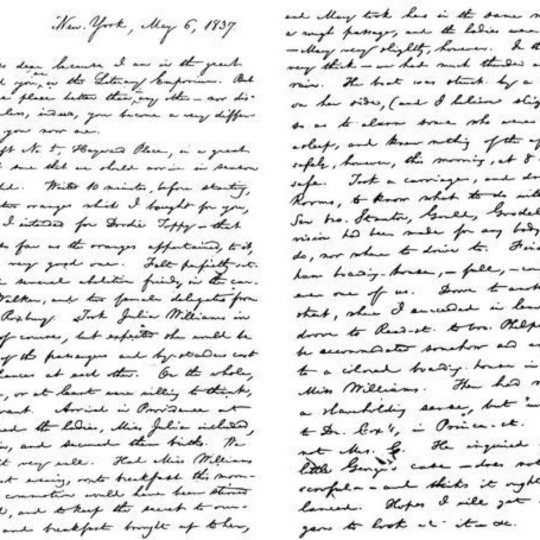 New-York, May 6, 1837
dear because I am in the great
you, as the Literary Emporium. But
on
a place better than any other — nor dis-
less, indeed, you become a very differ
you now are.
left No. 5, Hayward Place, in a great
sure that we should arrive in season
Within 10 minutes before starting,
two oranges which I bought for you,
I intended for Dordie Toppy — that
as far as the oranges appertained, to it,
very good one. Felt perfectly
several abolition friends, in the car-
Walker, and two female delegates from
Roxbury. Took Julia Williams in
of course, but expected she would be
of the passengers and by-standers cast
glances at each other. On the whole,
or at least were willing to think,
want. Arrived in Providence at
the ladies, Miss Julia included,
and secured their births. We
it very well. Had Miss Williams
last evening, or to breakfast this morn-
commotion would have been stirred
and to keep the secret to our-
and breakfast brought up to her,
and May took hers in the same
a rough passage, and the ladies were
— May very slightly, however. In the
very thick — we had much thunder
rain. The boat was struck by a
on her side, (and I believe
so as to alarm some who were
asleep, and knew nothing of the
safely, however, this morning, at 8
safe. Took a carriage, and
Rooms, to know what to do with
Saw bro. Stanton, Gould,
vision had been made for any body
do, nor where to drive to.
ham boarding-house, — full, —
even one of us. Drove to another
that, when I succeeded in
drove to Read-st. to bro. Phelps
be accommodated somehow
to a colored boarding-house in
Miss Williams. Then had
a slaveholding sense, but
to Dr. Cox's, in Prince-st.
not Mrs. G. He inquired
little George's case — does not
scrofula — and thinks it ought
lanced. Hopes I will get
gone to look at it — &c.